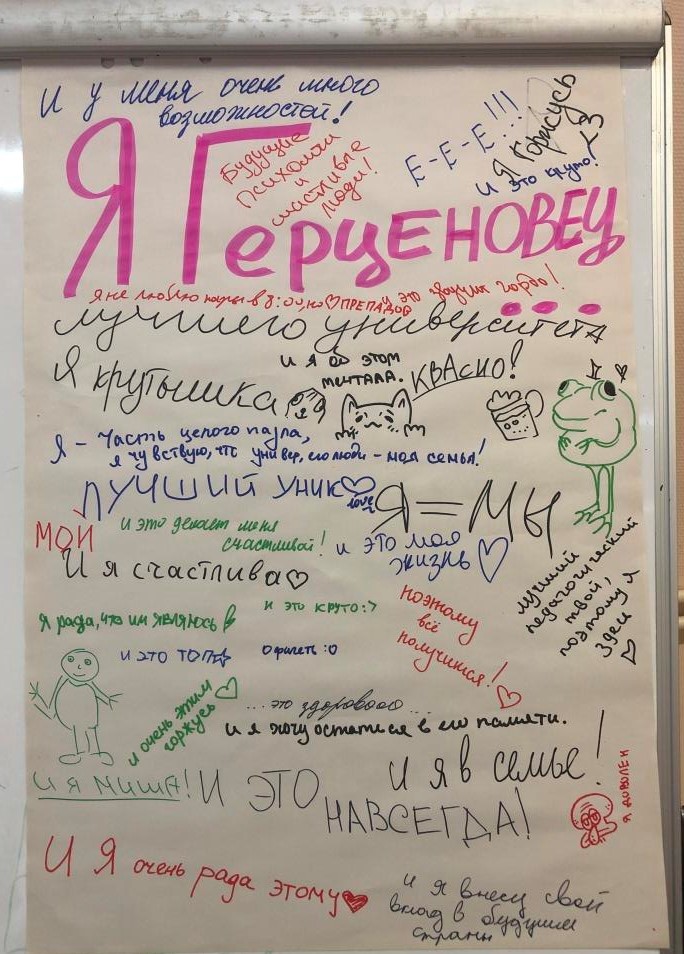 И у меня очень много
возможностей!
Будущие
психологи
и
счастливые
люди!
Е-Е-Е!!!
Я горжусь
<3
и это круто!
Я Герценовец
...
Я не люблю пары в 8:00, но ♡ ПРЕПАДОВ
и это звучит гордо!
лучшего университета
Я крутышка
и я об этом
мечтала.
КВАСНО!
Я - часть целого пазла,
я чувствую, что универ, его люди - моя семья!
ЛУЧШИЙ УНИК♡
love
Я = МЫ
МОЙ
и это делает меня
счастливой!
и это моя
жизнь ♡
И я счастлива♡
лучший
педагогический
твой,
поэтому я
здесь
♡
Я рада, что им являюсь
и это круто:>
поэтому
всё
получится!
♡
и это топ☆
офигеть :о
и очень этим
горжусь ♡
...это здоровооо...
и я хочу остаться в его памяти.
И я в семье!
И я Миша!
И ЭТО
НАВСЕГДА!
я доволен
И Я очень рада этому♥
и я внесу свой
вклад в будущее
страны